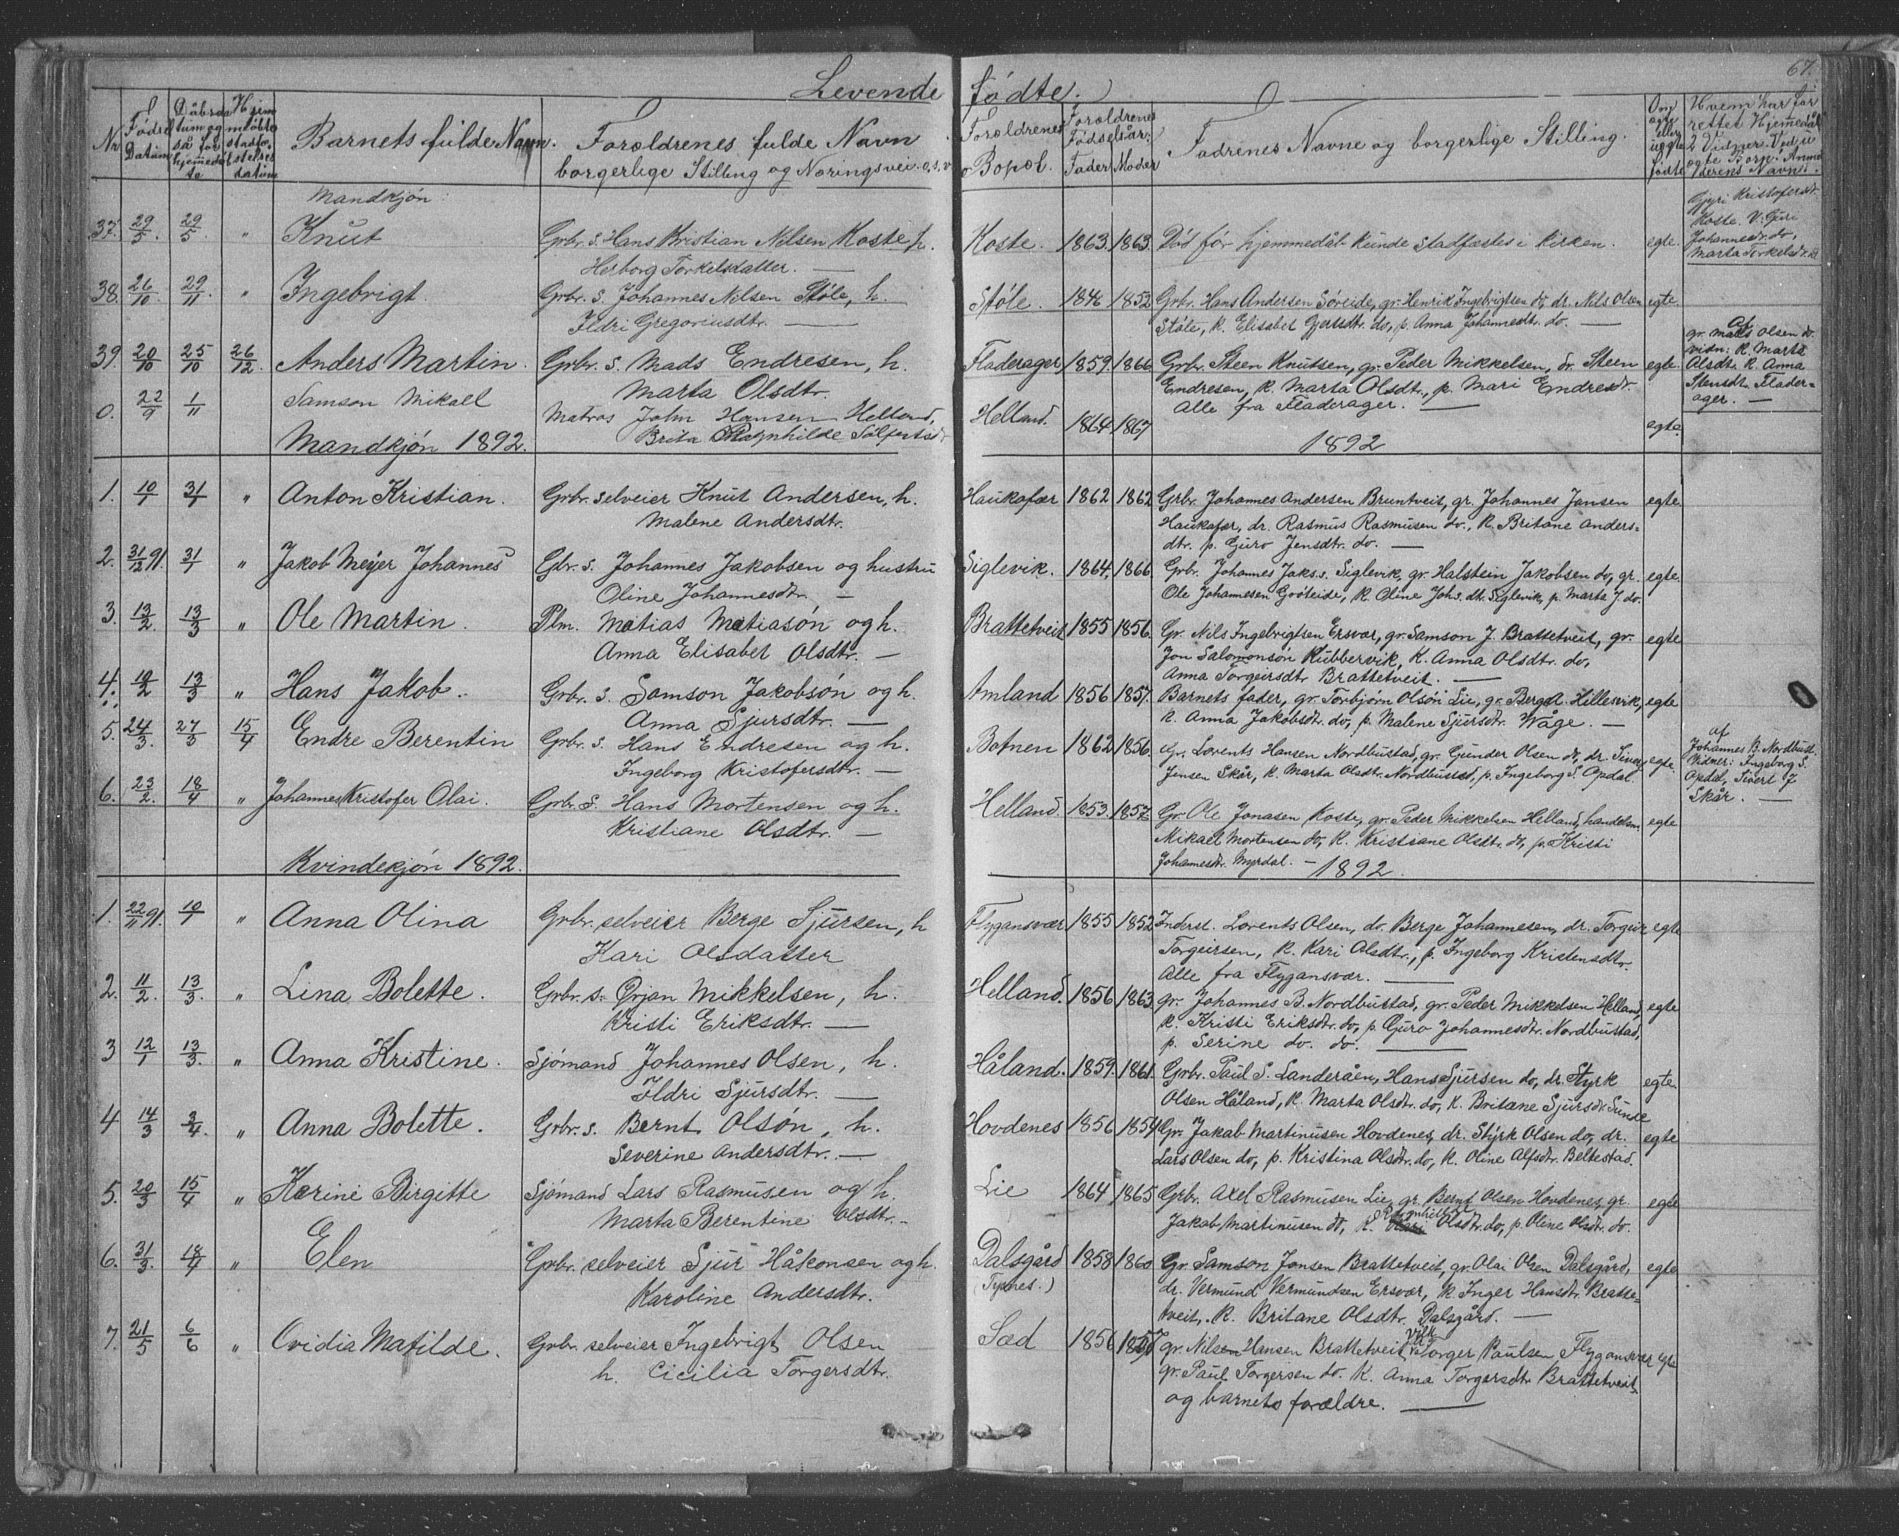 Levende fødte.
67.
Nr. Fødsels Datum Dåbsdatum også for hjemmedøbte Hjemmedøbtes stadfæstelses datum Barnets fulde Navn. Forældrenes fulde Navn borgerlige Stilling og Næringsvei o.s.v. Forældrenes Bopæl. Forældrenes Fødselsår: Fader Moder Fadrenes Navne og borgerlige Stilling. Om ægte eller uægte fødte Hvem har forrettet Hjemmedåb 2 Vidner. Ved uægte Børn: Anmelderens Navn.
Mandkjøn:
37. 29/5. 29/5 " Knut Grbr. S. Hans Kristian Nilsen Koste h. Koste. 1863. 1863. Død før hjemmedåb kunde stadfæstes i kirken. egte. Gjyri Kristofersdt.
Herborg Torkelsdatter. — Koste. V: Guri
Johannesdt. do,
Marta Torkelsdt.
38. 26/10. 29/11 " Ingebrigt. Grbr. S. Johannes Nilsen Støle, h. Støle. 1846 1852 Grbr. Hans Andersen Søreide, gr. Henrik Ingebrigtsen do, dr. Nils Olsen egte
Ildri Gregoriusdtr. — Støle, k. Elisabet Gjertsdt. do, p. Anna Johannesdt. do. —
39. 20/10 25/10 26/12. Anders Martin. Grbr. S. Mads Endresen, h. Fladerager 1859. 1866 Grbr. Steen Knutsen, gr. Peder Mikkelsen, dr. Steen egte. gr. Mads Olsen do
Marta Olsdtr. Endresen, k. Marta Olsdt., p. Mari Endresdt. vidn: K. Marta
Alle fra Fladerager. — Olsdt, K. Anna
Stensdt. Fladerager. —
0. 22/9 1/11 Samson Mikael Matros John Hansen Helland, Helland. 1864 1867 egte.
Brita Ragnhilde Salfestsdt
Mandkjøn 1892. 1892
1. 10/1 31/1 " Anton Kristian. Grbr. selveier Knut Andersen, h. Haukafær 1862 1862 Grbr Johannes Andersen Bruntveit, gr. Johannes Jansen egte
Malene Andersdtr. Haukafær, dr. Rasmus Rasmusen do., k. Britane Anders=
dtr. p. Guro Jensdtr. do. —
2. 31/12 91. 31/1 " Jakob Meyer Johannes Gbr. s. Johannes Jakobsen og hustru Siglevik. 1864. 1866 Grbr. Johannes Jaks.s. Siglevik, gr. Halstein Jakobsen do, gr. egte.
Oline Johannesdtr. — Ole Johannesen Grøteide, k. Oline Johs. dt. Siglevik, p. Marta J. do.
3. 13/2 13/3 " Ole Martin. Plm. Matias Matiasøn og h. Brattetveit 1855 1856. Gr. Nils Ingebrigtsen Ersvær, gr. Samson J. Brattetveit, gr. egte
Anna Elisabet Olsdtr. — Jon Salomonsøn Kubbervik, k. Anna Olsdtr. do,
Anna Torgeirsdtr Brattetveit. —
4. 19/2 13/3 " Hans Jakob. Grbr. s. Samson Jakobsøn og h. Amland 1856 1857. Barnets fader, gr. Torbjørn Olsøn Lie, gr. Berge A. Hillesvik, egte
Anna Sjursdtr. — k. Anna Jakobsdtr. do, p. Malene Sjursdtr. Wåge. —
5. 24/3. 27/3 15/4 Endre Berentin Grbr. s. Hans Endresen og h. Botnen 1862 1856. Gr. Lorents Hansen Nordhustad, gr. Gunder Olsen do, dr. Siver egte. af Johannes B. Nordhust.
Ingeborg Kristofersdtr. — Jensen Skår, k. Marta Olsdtr. Nordhustad, p. Ingeborg S. Opdal Vidner: Ingeborg S.
Opdal, Sivert J
Skår. —
6. 23/2. 18/4 " Johannes Kristofer Olai. Grbr. S. Hans Mortensen og h. Helland. 1853. 1857. Gr. Ole Jonasen Koste, gr. Peder Mikkelsen Helland, handelsm. egte
Kristiane Olsdtr. — Mikael Mortensen do, k. Kristiane Olsdt. do, p. Kristi
Johannesdt. Myrdal. —
Kvindekjøn 1892. 1892.
1. 22/11 91. 10/1 " Anna Olina Grbr. selveier Berge Sjursen, h Flygansvær 1855 1852 Inderst. Lorents Olsen, do. Berge Johannesen, dr. Torgeir egte
Kari Olsdatter Torgeirsen, k. Kari Olsdtr., p. Ingeborg Kristensdtr.
Alle fra Flygansvær. —
2. 11/2. 13/3. " Lina Bolette. Grbr. s. Ørjan Mikkelsen, h. Helland. 1856 1863 gr. Johannes B. Nordhustad, gr. Peder Mikkelsen Helland, egte
Kristi Eriksdtr. — k. Kristi Eriksdtr. do, p. Guro Johannesdtr. Nordhustad,
p. Serine do. do. —
3 12/1 13/3. " Anna Kristine. Sjømand Johannes Olsen, h. Håland. 1859. 1861. Grbr. Paul S. Landeråen, Hans Sjursen do, dr. Styrk egte
Ildri Sjursdtr. — Olsen Håland, k. Marta Olsdt. do, k. Britane Sjursdt. Sunde
4 14/3 3/4. " Anna Bolette. Grbr. s. Bernt Olsøn, h. Hovdenes 1856 1854 Gr. Jakob Martinusen Hovdenes, dr. Styrk Olsen do, dr. egte
Severine Andersdtr. — Lars Olsen do, p. Kristina Olsdt. do, k. Oline Alfsdtr. Beltestad.
5. 20/3 15/4 " Karine Birgitte Sjømand Lars Rasmusen og h. Lie 1864 1865 Grbr. Axel Rasmusen Lie, gr. Bernt Olsen Hovdenes, gr. egte
Marta Berentine Olsdtr. — Jakob Martinusen do, k. Ragnhilde Olsdtr. do, p. Oline Olsdtr. do.
6. 31/3 18/4 " Elen Grbr. selveier Sjur Håkonsen og h Dalsgård 1858 1860 Gr. Samson Jonsen Brattetveit, gr. Olai Olsen Dalsgård, egte
Karoline Andersdtr. (Tysnes.) dr. Vermund Vermundsen Ersvær, k. Inger Hansdtr. Bratte=
tveit, k. Britane Olsdtr. Dalsgård. —
7. 21/5 6/6 " Ovidia Matilde. Grbr. selveier Ingebrigt Olsen Sæd 1856 1857 gr. Nils Hansen Brattetveit, Torger Paulsen Flygansvær egte
h. Cicilia Torgersdtr. gr. Paul Torgersen do. k. Anna Torgersdtr Brattetveit
og barnets forældre. —